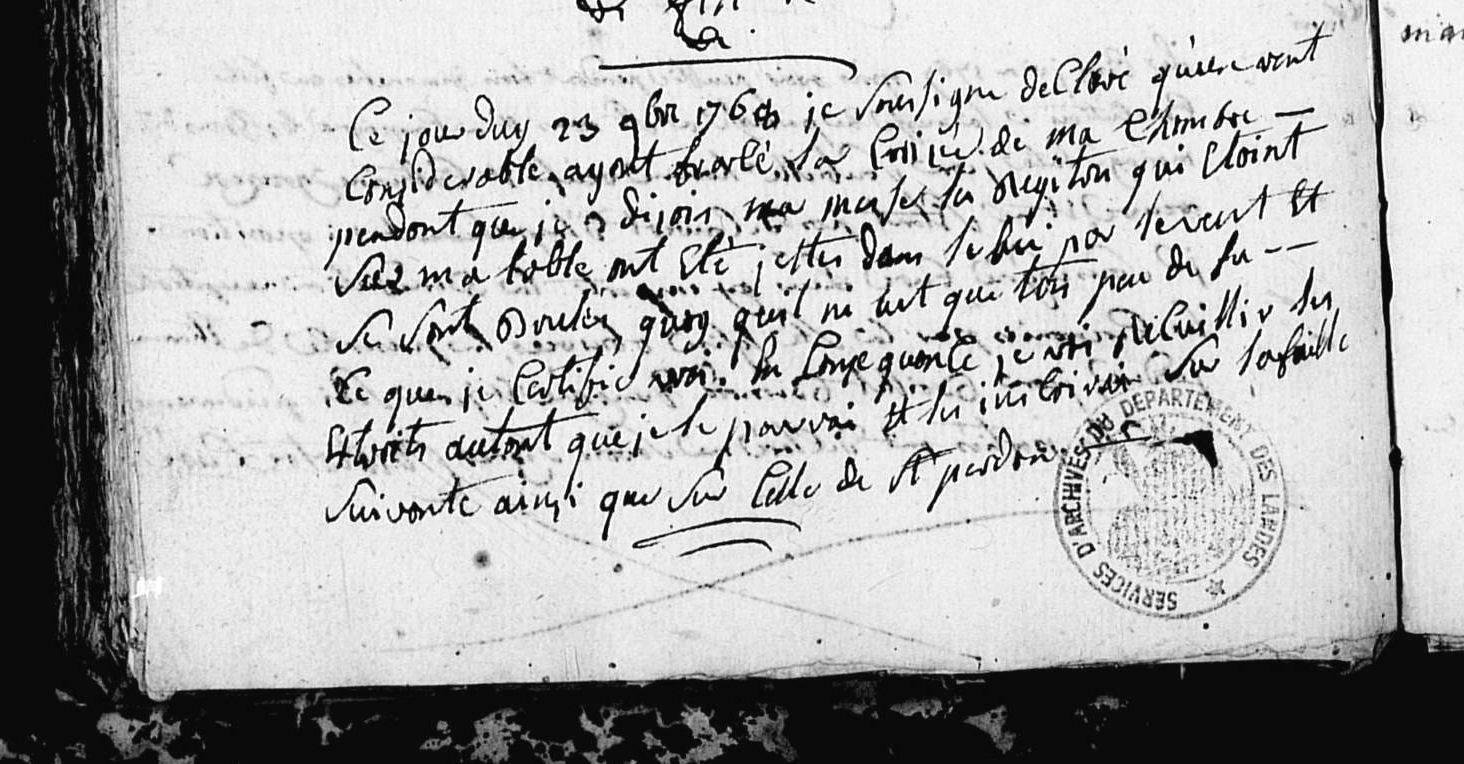 Ce jourduy 23 9bre 1768 je soussigne declare qu'une vent
Considerable ayant la de ma Chambre
pendant que je disois ma messe les Registres qui Etoint
Sur ma table ont Eté jettes dans le feu par le vent Et
Se sont Brules, quoy quil ni eut que tres peu de fu
Ce que je Certifie vrai. En Consequence je vai Recuillir les
Extraits autant que je le pourrai Et les inscrirai Sur la feuille
Suivante ainsi que Sur Celle de St perdon
SERVICES D'ARCHIVES DU DEPARTEMENT DES LANDES